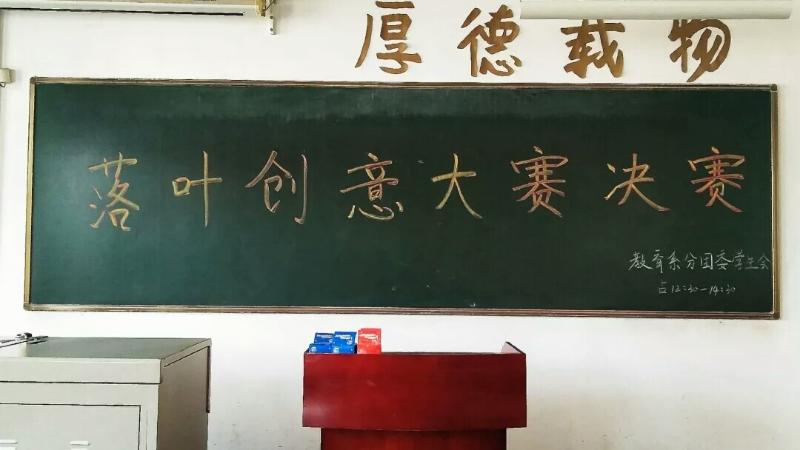 厚德载物
落叶创意大赛决赛
教育系分团委学生会
占12:30-14:30